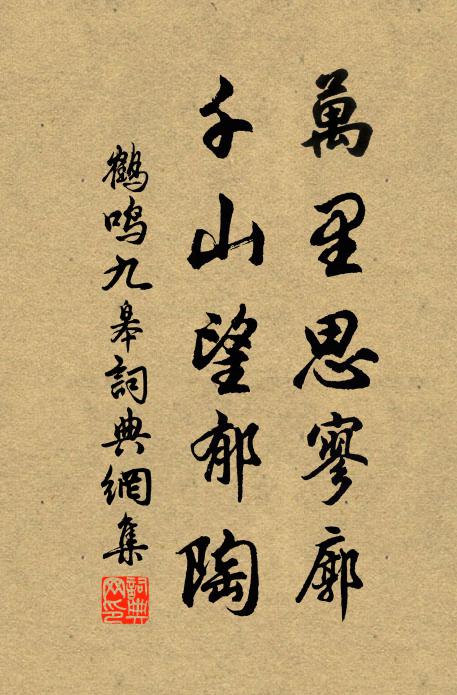 萬里思寥廓
千山望郁陶
鶴鳴九皋詞典網集
詞典网印